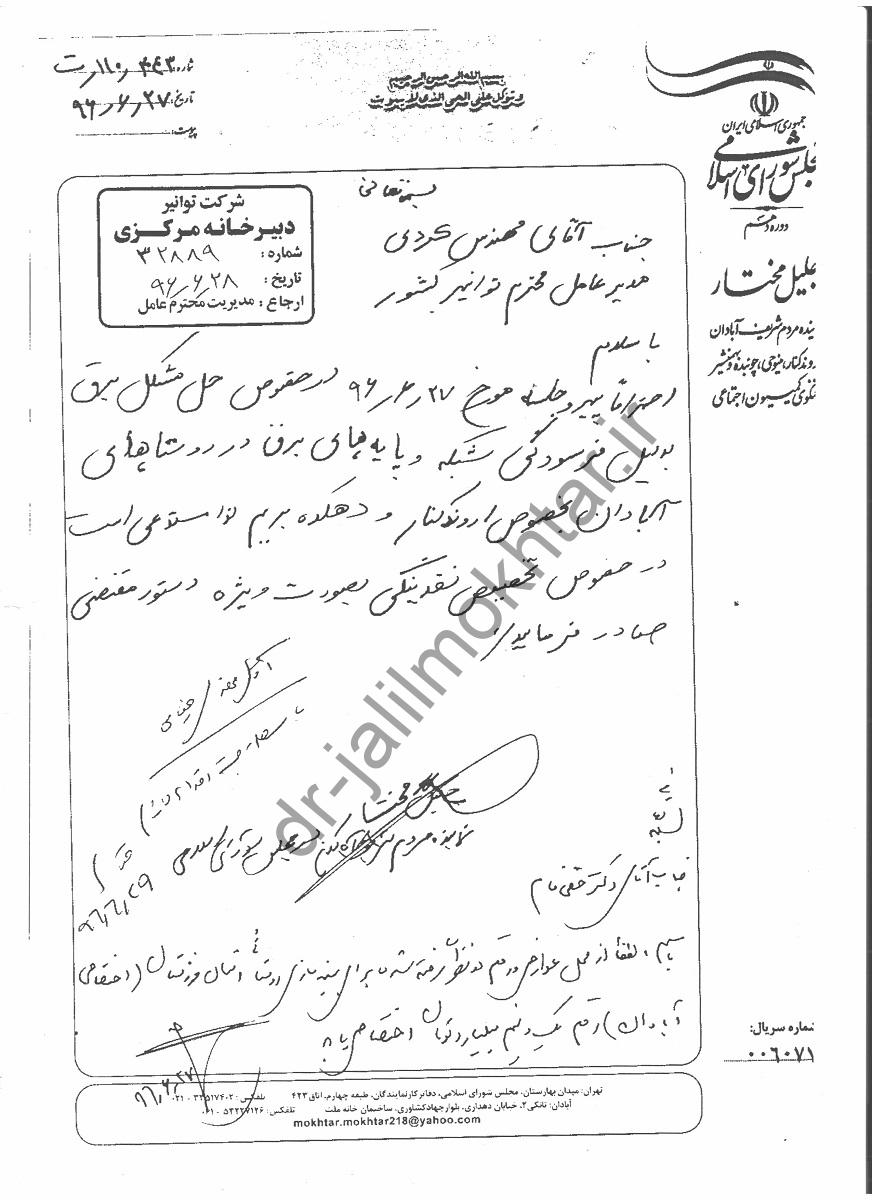 شماره: ۱۱۰٫۴۴۳٫ت
تاریخ: ۹۶٫۶٫۲۷
پیوست:
بسم الله الرحمن الرحیم
و توکل علی الحی الذی لا یموت
جمهوری اسلامی ایران
مجلس شورای اسلامی
دوره دهم
جلیل مختار
ینده مردم شریف آبادان
روندکنار، مینوحی، چوئبده و بهمنشیر
خنگوی کمیسیون اجتماعی
شرکت توانیر
دبیرخانه مرکزی
شماره: ۳۲۸۸۹
تاریخ: ۹۶٫۶٫۲۸
ارجاع: مدیریت محترم عامل
بسمه تعالی
جناب آقای مهندس کردی
مدیر عامل محترم توانیر کشور
با سلام
احتراماً پیرو جلسه مورخ ۹۶٫۶٫۲۷ در خصوص حل مشکل برق
بدلیل فرسودگی شبکه و پایه های برق در روستاهای
آبادان بخصوص اروندکنار و دهکده بریم لذا مستدعی است
در خصوص تخصیص نقدینگی بصورت ویژه دستور مقتضی
صادر فرمایید.
با سلام جهت اقدام لازم
۹۶٫۶٫۲۹
جلیل مختار
نماینده مردم شریف آبادان در مجلس شورای اسلامی
جناب آقای دکتر حقی فام
با سلام، لطفاً از محل عوارض و رقم در نظر گرفته شده برای بهینه سازی روستائی استان خوزستان (اختصاصی
آبادان) رقم یک و نیم میلیارد تومان اختصاص یابد
۹۶٫۶٫۲۷
شماره سریال:
۰۰۶۰۷۱
تهران: میدان بهارستان، مجلس شورای اسلامی، دفاتر کار نمایندگان، طبقه چهارم، اتاق ۴۲۳ تلفکس: ۳۳۵۱۷۴۰۲ - ۰۲۱
آبادان: تانکی۲، خیابان دهداری، بلوار جهاد کشاورزی، ساختمان خانه ملت تلفکس: ۵۳۲۲۷۱۲۶ - ۰۶۱
mokhtar.mokhtar218@yahoo.com
dr-jalilmokhtar.ir